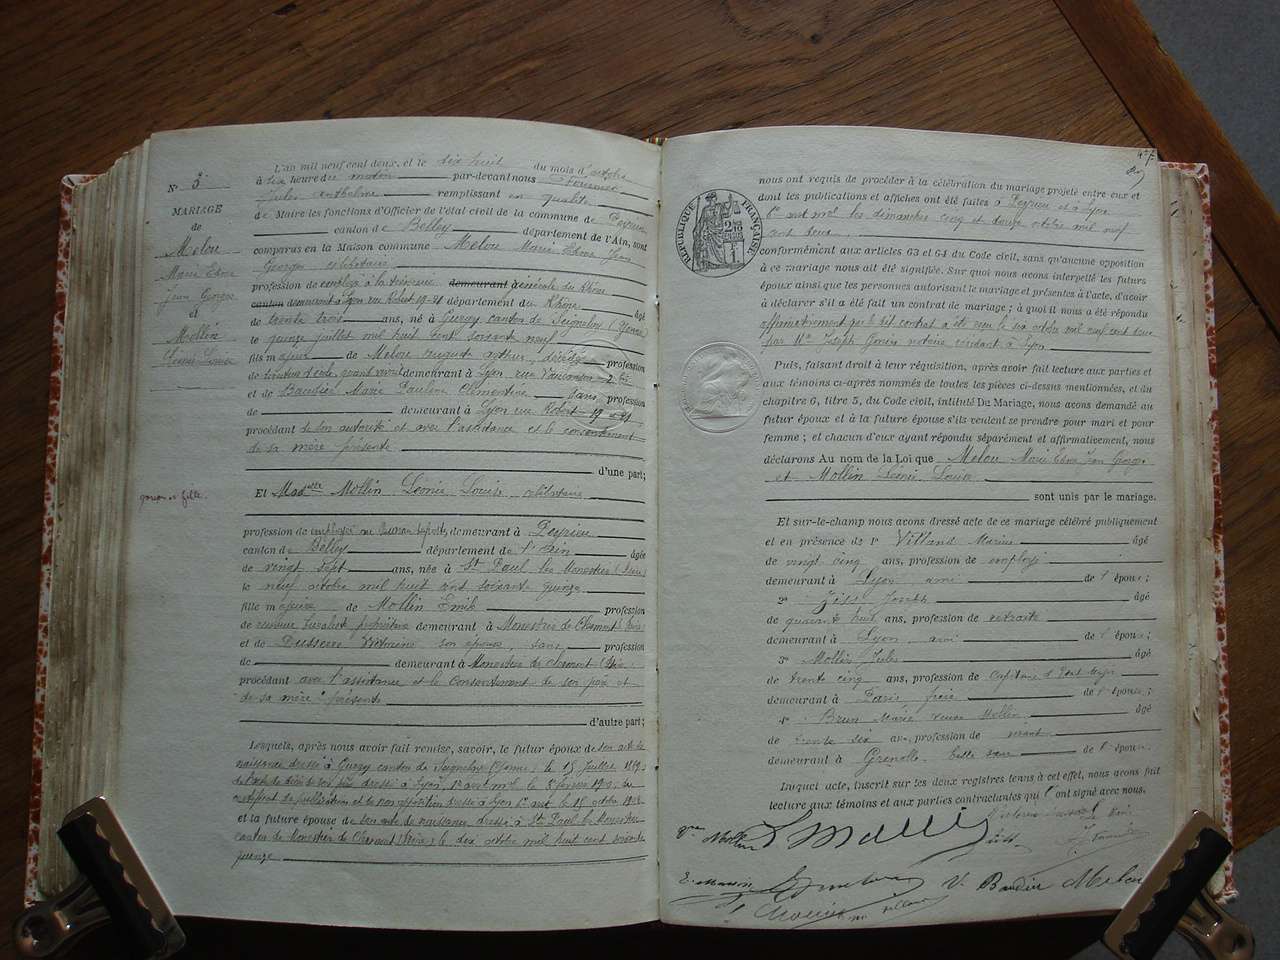 N° 3
MARIAGE
de
Melou
Marie Edme
Jean Georges
et
Mollin
Léonie Louise
L'an mil neuf cent deux, et le dix huit du mois d'octobre
à dix heures du matin par-devant nous Fournier
Jules Anthelme remplissant en qualité
de Maire les fonctions d'Officier de l'état civil de la commune de Peyrieu
canton de Belley département de l'Ain, sont
comparus en la Maison commune Melou Marie Edme Jean
Georges célibataire
profession de employé à la trésorerie demeurant générale du Rhône
canton demeurant à Lyon rue Robert 19-21 département du Rhône âgé
de trente trois ans, né à Gurgy canton de Seignelay (Yonne)
le quinze juillet mil huit cent soixante neuf
fils majeur de Melou Auguste Arthur, décédé profession
de demeurant à Lyon, rue Vaucanson 2 bis
et de Baudin Marie Pauline Clémentine sans profession
de demeurant à Lyon rue Robert 19 et 21
procédant de son autorité et avec l'assistance et le consentement
de sa mère présente
d'une part;
garçon et fille.
Et Mad^elle Mollin Léonie Louise célibataire
profession de employée au demeurant à Peyrieu
canton de Belley département de l'Ain âgée
de vingt sept ans, née à St Paul les Monestier (Isère)
le neuf octobre mil huit cent soixante quinze
fille majeure de Mollin Emile profession
de propriétaire demeurant à Monestier de Clermont (Isère)
et de Dusserre Victorine son épouse, sans profession
de demeurant à Monestier de Clermont (Isère)
procédant avec l'assistance et le consentement de son père et
de sa mère présents
d'autre part;
Lesquels, après nous avoir fait remise, savoir, le futur époux de son acte de
naissance dressé à Gurgy canton de Seignelay (Yonne) le 15 Juillet 1869;
de l'acte de décès de son père dressé à Lyon, 1er arr mol. le février; du
certificat de publication et de non opposition dressé à Lyon 1er arr le 15 octobre 1902
et la future épouse de son acte de naissance dressé à St Paul les Monestier
canton de Monestier de Clermont (Isère) le dix octobre mil huit cent soixante
quinze
nous ont requis de procéder à la célébration du mariage projeté entre eux et
dont les publications et affiches ont été faites à Peyrieu et à Lyon
1er arr mol les dimanches cinq et douze octobre mil neuf
cent deux
conformément aux articles 63 et 64 du Code civil, sans qu'aucune opposition
à ce mariage nous ait été signifiée. Sur quoi nous avons interpellé les futurs
époux ainsi que les personnes autorisant le mariage et présentes à l'acte, d'avoir
à déclarer s'il a été fait un contrat de mariage; à quoi il nous a été répondu
affirmativement que le dit contrat a été reçu le six octobre mil neuf cent deux
par Me Joseph notaire résidant à Lyon
Puis, faisant droit à leur réquisition, après avoir fait lecture aux parties et
aux témoins ci-après nommés de toutes les pièces ci-dessus mentionnées, et du
chapitre 6, titre 5, du Code civil, intitulé Du Mariage, nous avons demandé au
futur époux et à la future épouse s'ils veulent se prendre pour mari et pour
femme; et chacun d'eux ayant répondu séparément et affirmativement, nous
déclarons Au nom de la Loi que Melou Marie Edme Jean Georges
et Mollin Léonie Louise
sont unis par le mariage.
Et sur-le-champ nous avons dressé acte de ce mariage célébré publiquement
et en présence de 1° Villand Marius âgé
de vingt cinq ans, profession de employé
demeurant à Lyon ami de l'époux;
2° Joseph âgé
de quarante huit ans, profession de retraité
demeurant à Lyon, ami de l'époux;
3° Mollin Jules âgé
de trente cinq ans, profession de Capitaine d'Etat Major
demeurant à Paris frère de l'épouse;
4° Brun Marie veuve Mollin âgé
de trente six ans, profession de néant
demeurant à Grenoble belle sœur de l'épouse.
Lequel acte, inscrit sur les deux registres tenus à cet effet, nous avons fait
lecture aux témoins et aux parties contractantes qui l'ont signé avec nous.
Vve Mollin
L Mollin
V. Baudin Melou
RÉPUBLIQUE FRANÇAISE